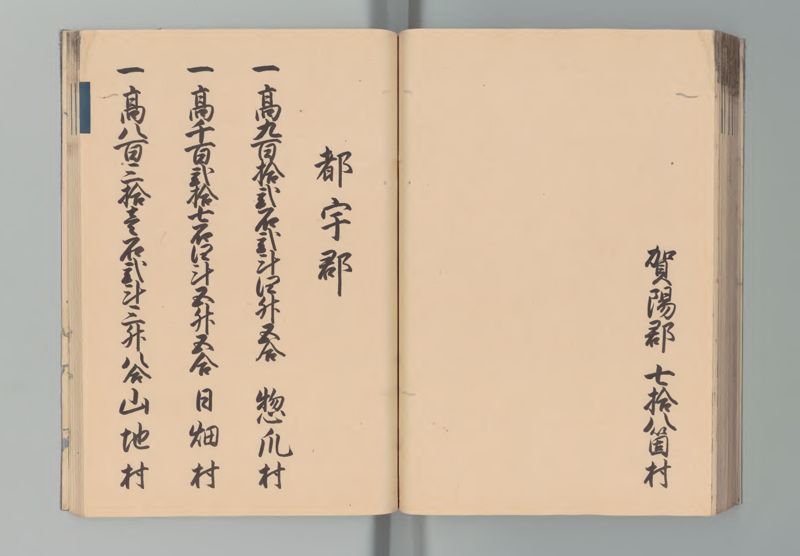 賀陽郡 七拾八箇村
都宇郡
一 高九百拾弐石弐斗四升五合 惣爪村
一 高千百弐拾七石四斗五升五合 日畑村
一 高八百三拾壱石弐斗三升八合 山地村